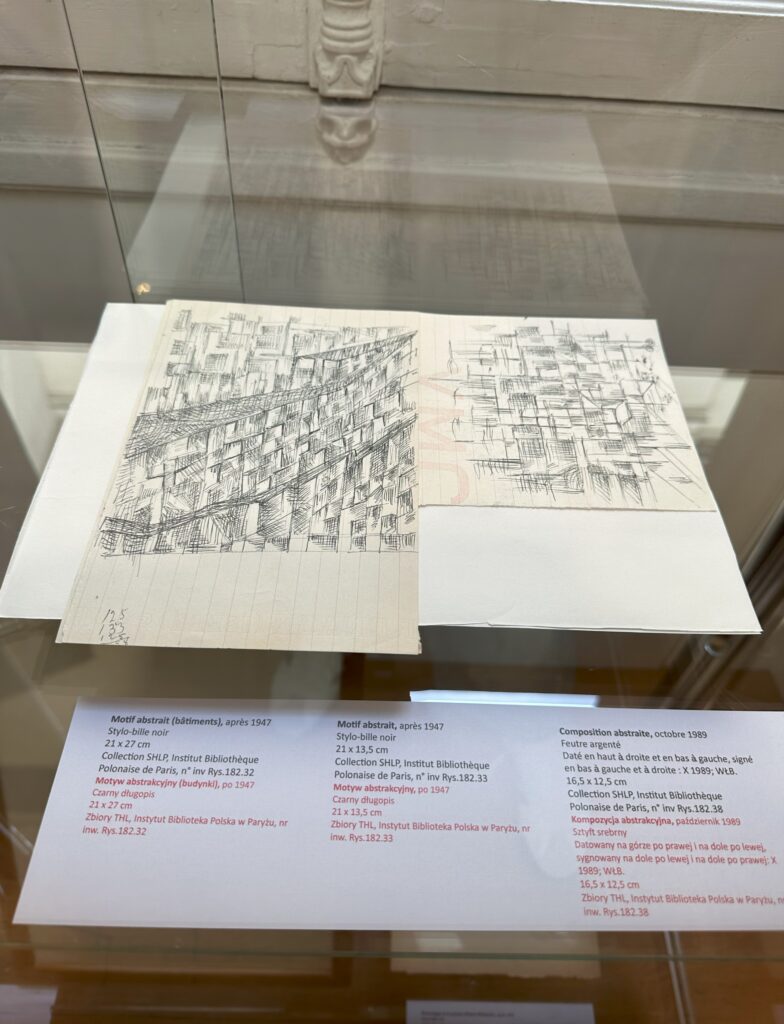 125
133
Motif abstrait (bâtiments), après 1947
Stylo-bille noir
21 x 27 cm
Collection SHLP, Institut Bibliothèque
Polonaise de Paris, n° inv Rys.182.32
Motyw abstrakcyjny (budynki), po 1947
Czarny długopis
21 x 27 cm
Zbiory THL, Instytut Biblioteka Polska w Paryżu, nr
inw. Rys.182.32
Motif abstrait, après 1947
Stylo-bille noir
21 x 13,5 cm
Collection SHLP, Institut Bibliothèque
Polonaise de Paris, n° inv Rys.182.33
Motyw abstrakcyjny, po 1947
Czarny długopis
21 x 13,5 cm
Zbiory THL, Instytut Biblioteka Polska w Paryżu, nr
inw. Rys.182.33
Composition abstraite, octobre 1989
Feutre argenté
Daté en haut à droite et en bas à gauche, signé
en bas à gauche et à droite : X 1989; WŁB.
16,5 x 12,5 cm
Collection SHLP, Institut Bibliothèque
Polonaise de Paris, n° inv Rys.182.38
Kompozycja abstrakcyjna, październik 1989
Sztyft srebrny
Datowany na górze po prawej i na dole po lewej,
sygnowany na dole po lewej i na dole po prawej: X
1989; WŁB.
16,5 x 12,5 cm
Zbiory THL, Instytut Biblioteka Polska w Paryżu, nr
inw. Rys.182.38